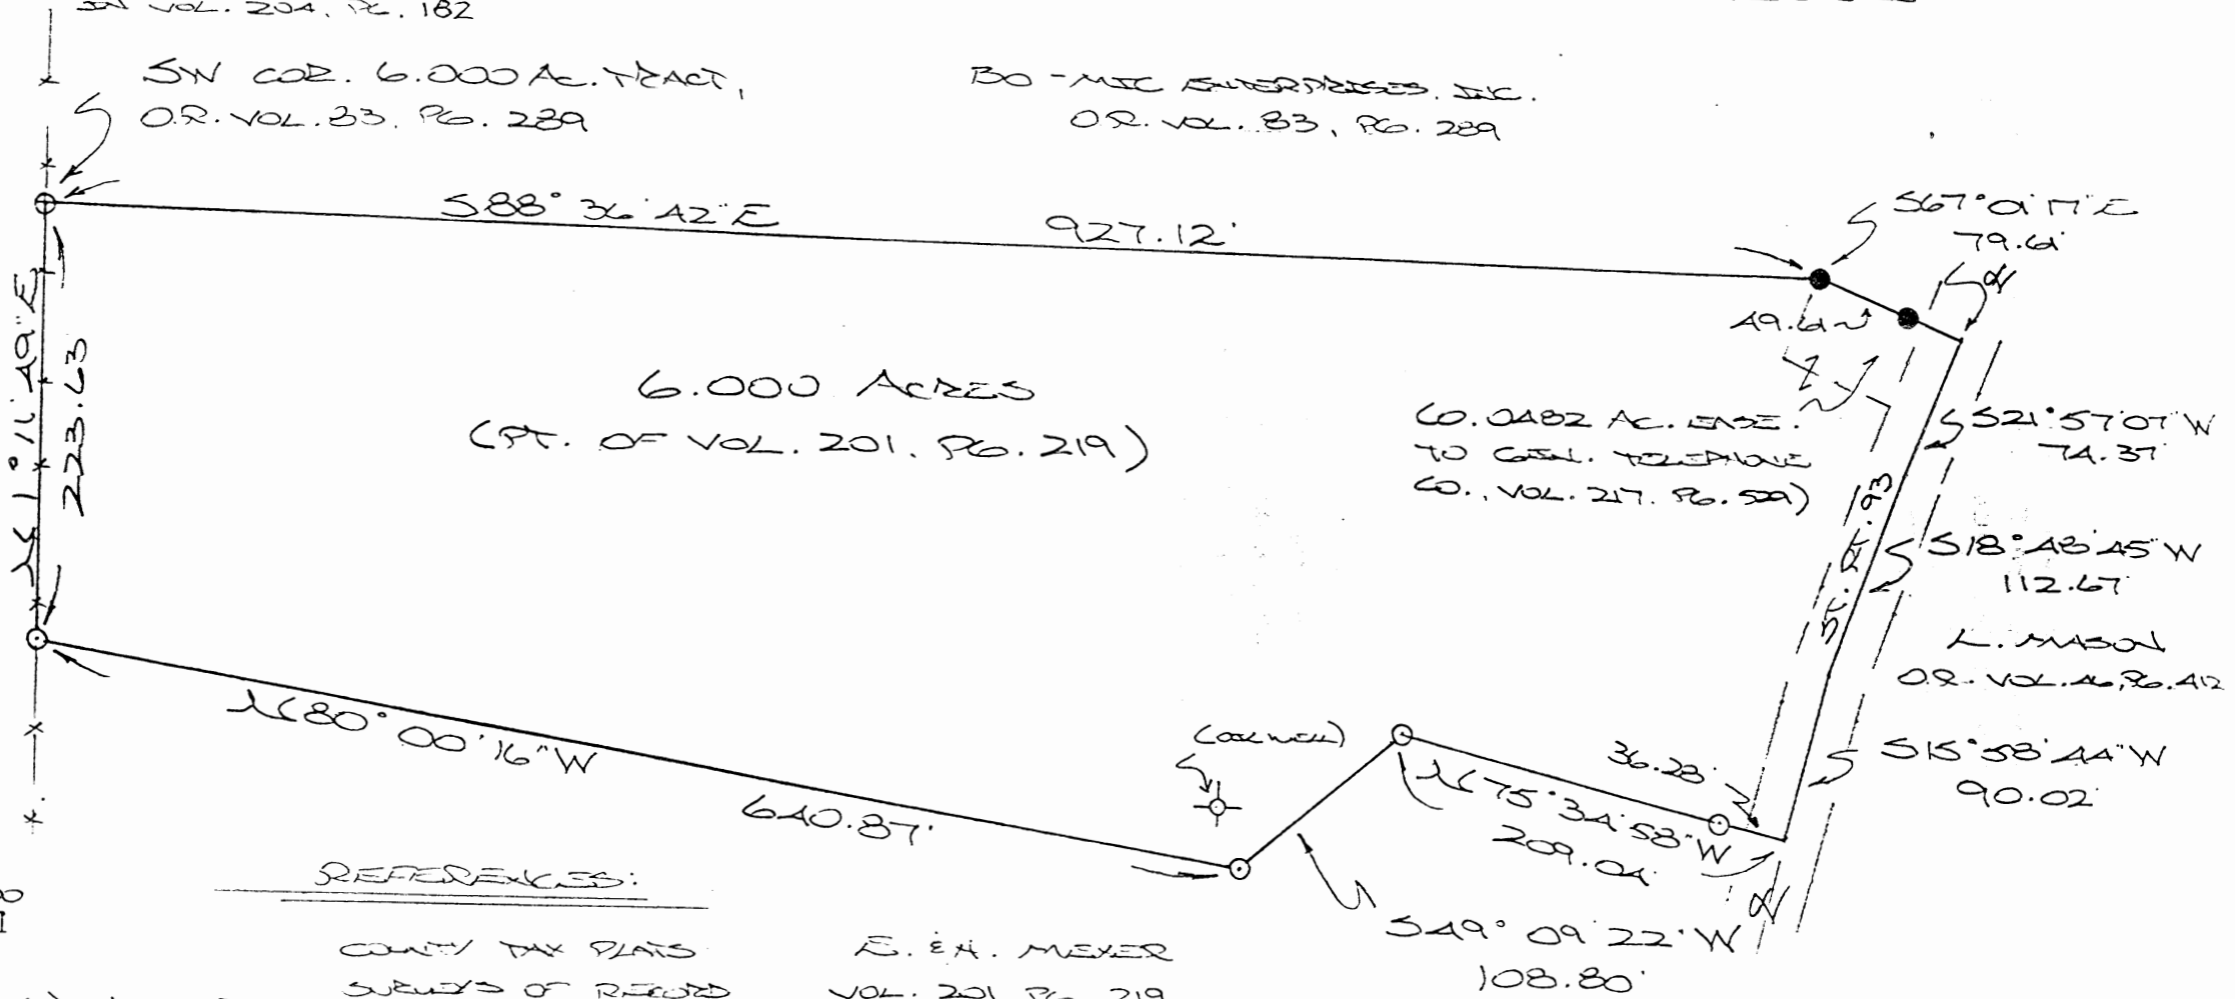 IN VOL. 204, PG. 182
SW COR. 6.000 AC. TRACT,
O.R. VOL. 83, PG. 289
BO-MIC ENTERPRISES, INC.
O.R. VOL. 83, PG. 289
S88° 36' 42" E
927.12'
S67° 01' 17" E
79.61'
49.61
N 1° 11' 49" E
223.63
6.000 ACRES
(PT. OF VOL. 201, PG. 219)
(0.0482 AC. EASE.
TO GENL. TELEPHONE
CO., VOL. 217, PG. 529)
S21° 57' 07" W
74.37'
ST. RT. 93
S18° 48' 45" W
112.67'
L. MASON
O.R. VOL. 46, PG. 412
S15° 58' 44" W
90.02'
N80° 00' 16" W
640.87'
(OIL WELL)
36.28'
N75° 34' 58" W
209.04'
S49° 09' 22" W
108.80'
REFERENCES:
COUNTY TAX PLATS
SURVEYS OF RECORD
E. & H. MEYER
VOL. 201 PG. 219